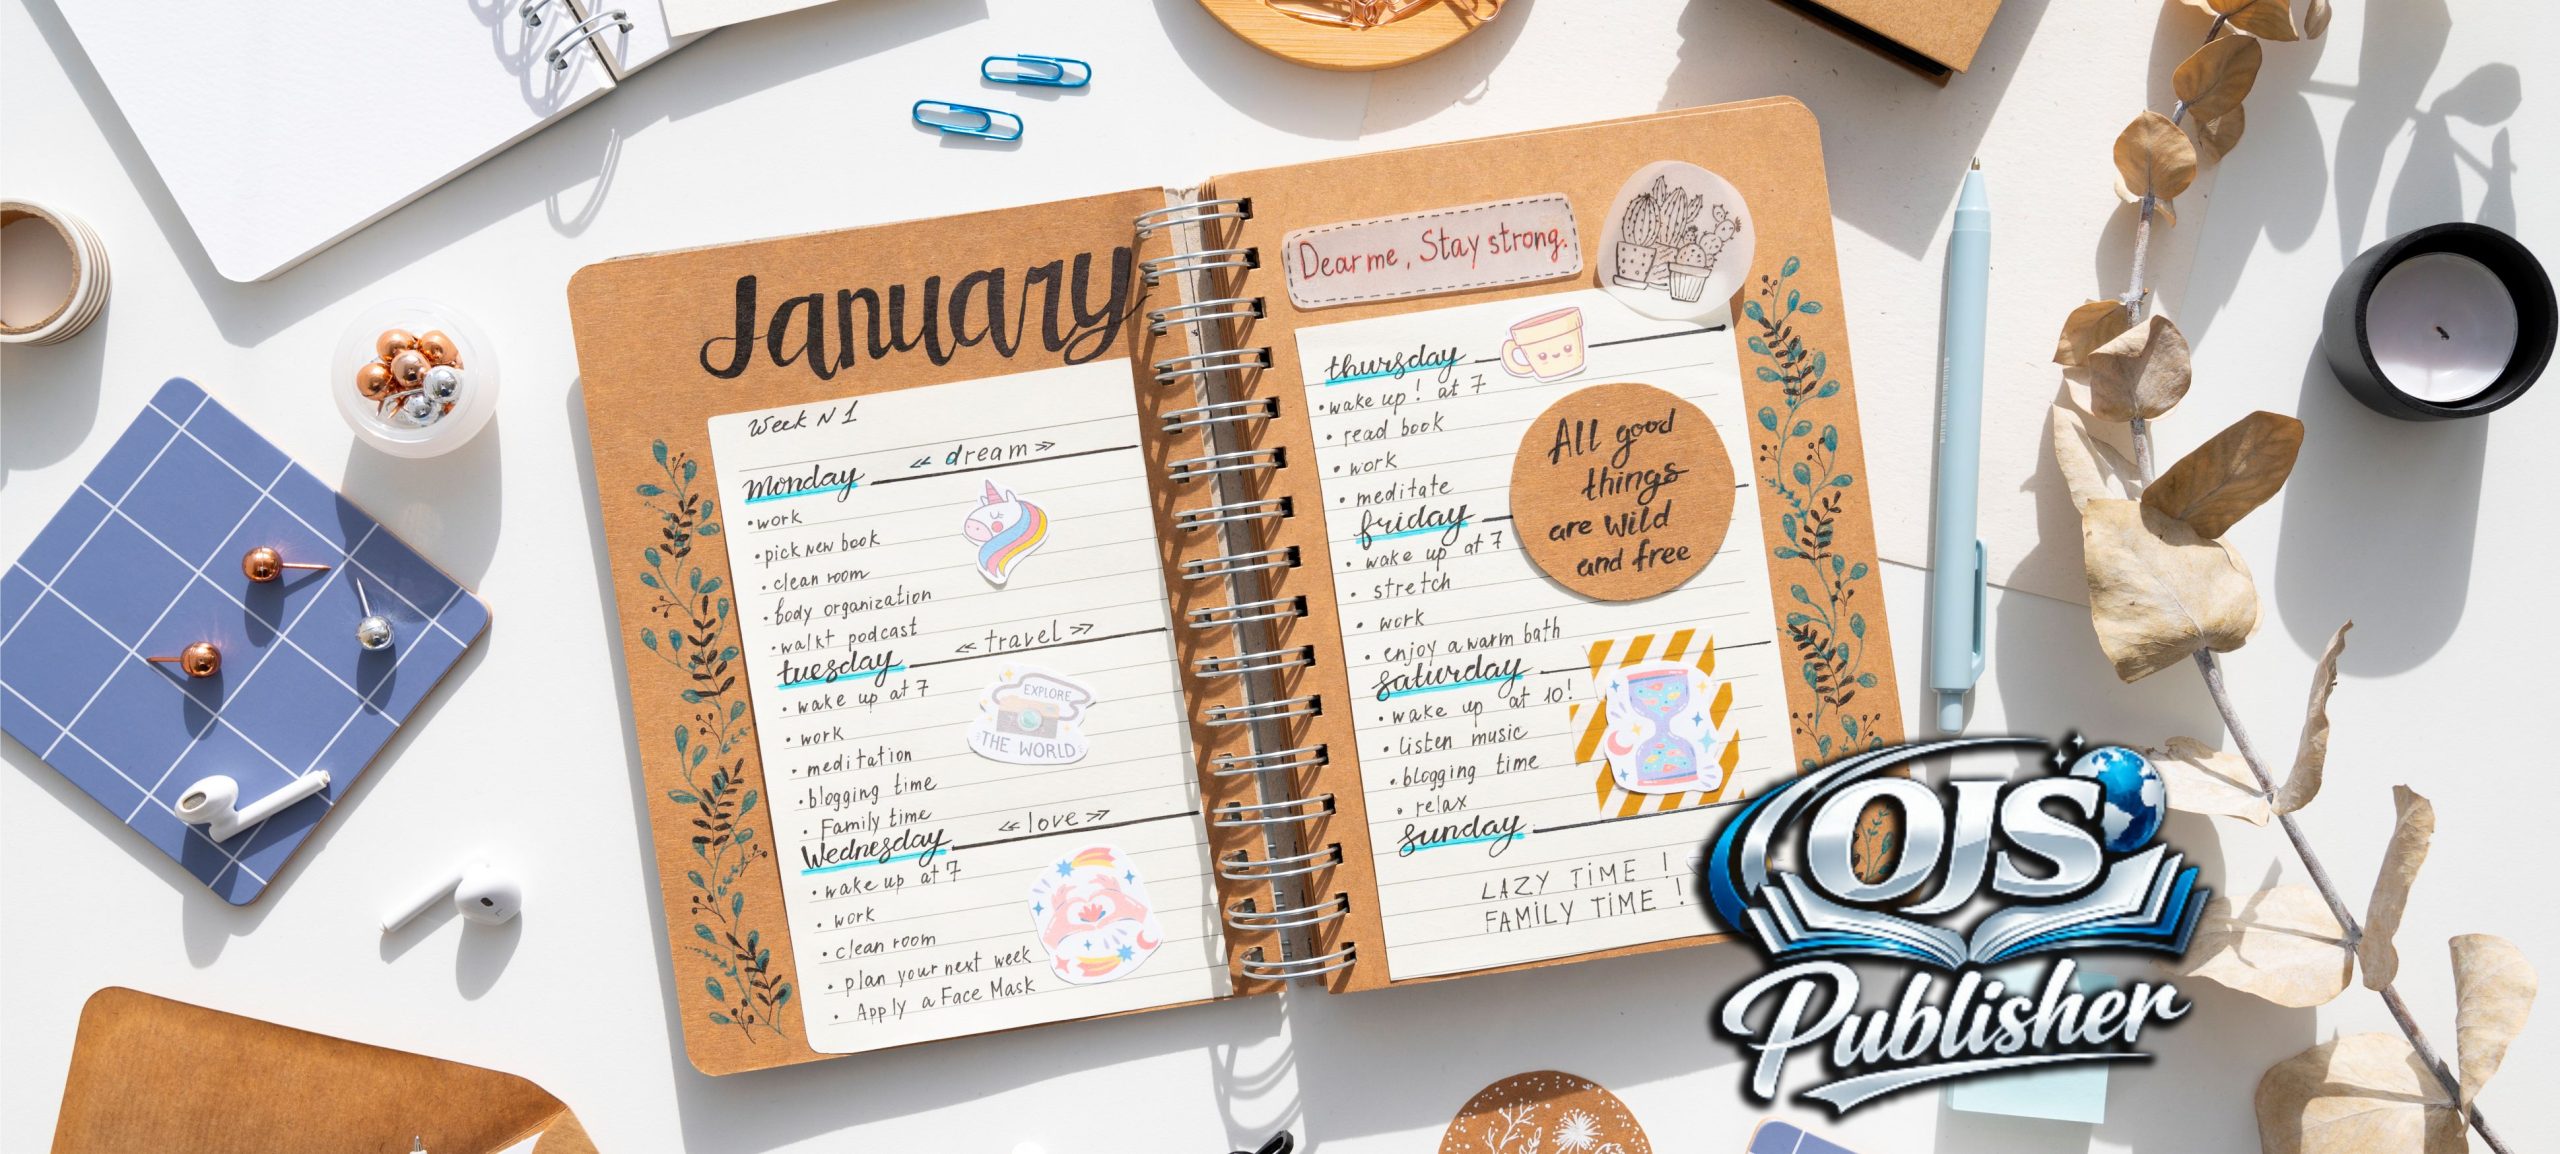 January
Week N 1
monday
« dream »
• work
• pick new book
• clean room
• body organization
• walkt podcast
tuesday
« travel »
• wake up at 7
• work
• meditation
• blogging time
• Family time
EXPLORE
THE WORLD
Wednesday
« love »
• wake up at 7
• work
• clean room
• plan your next week
• Apply a Face Mask
Dear me, Stay strong.
thursday
• wake up! at 7
• read book
• work
• meditate
All good
things
are wild
and free
friday
• wake up at 7
• stretch
• work
• enjoy a warm bath
saturday
• wake up at 10!
• listen music
• blogging time
• relax
sunday
LAZY TIME !
FAMILY TIME !
OJS
Publisher